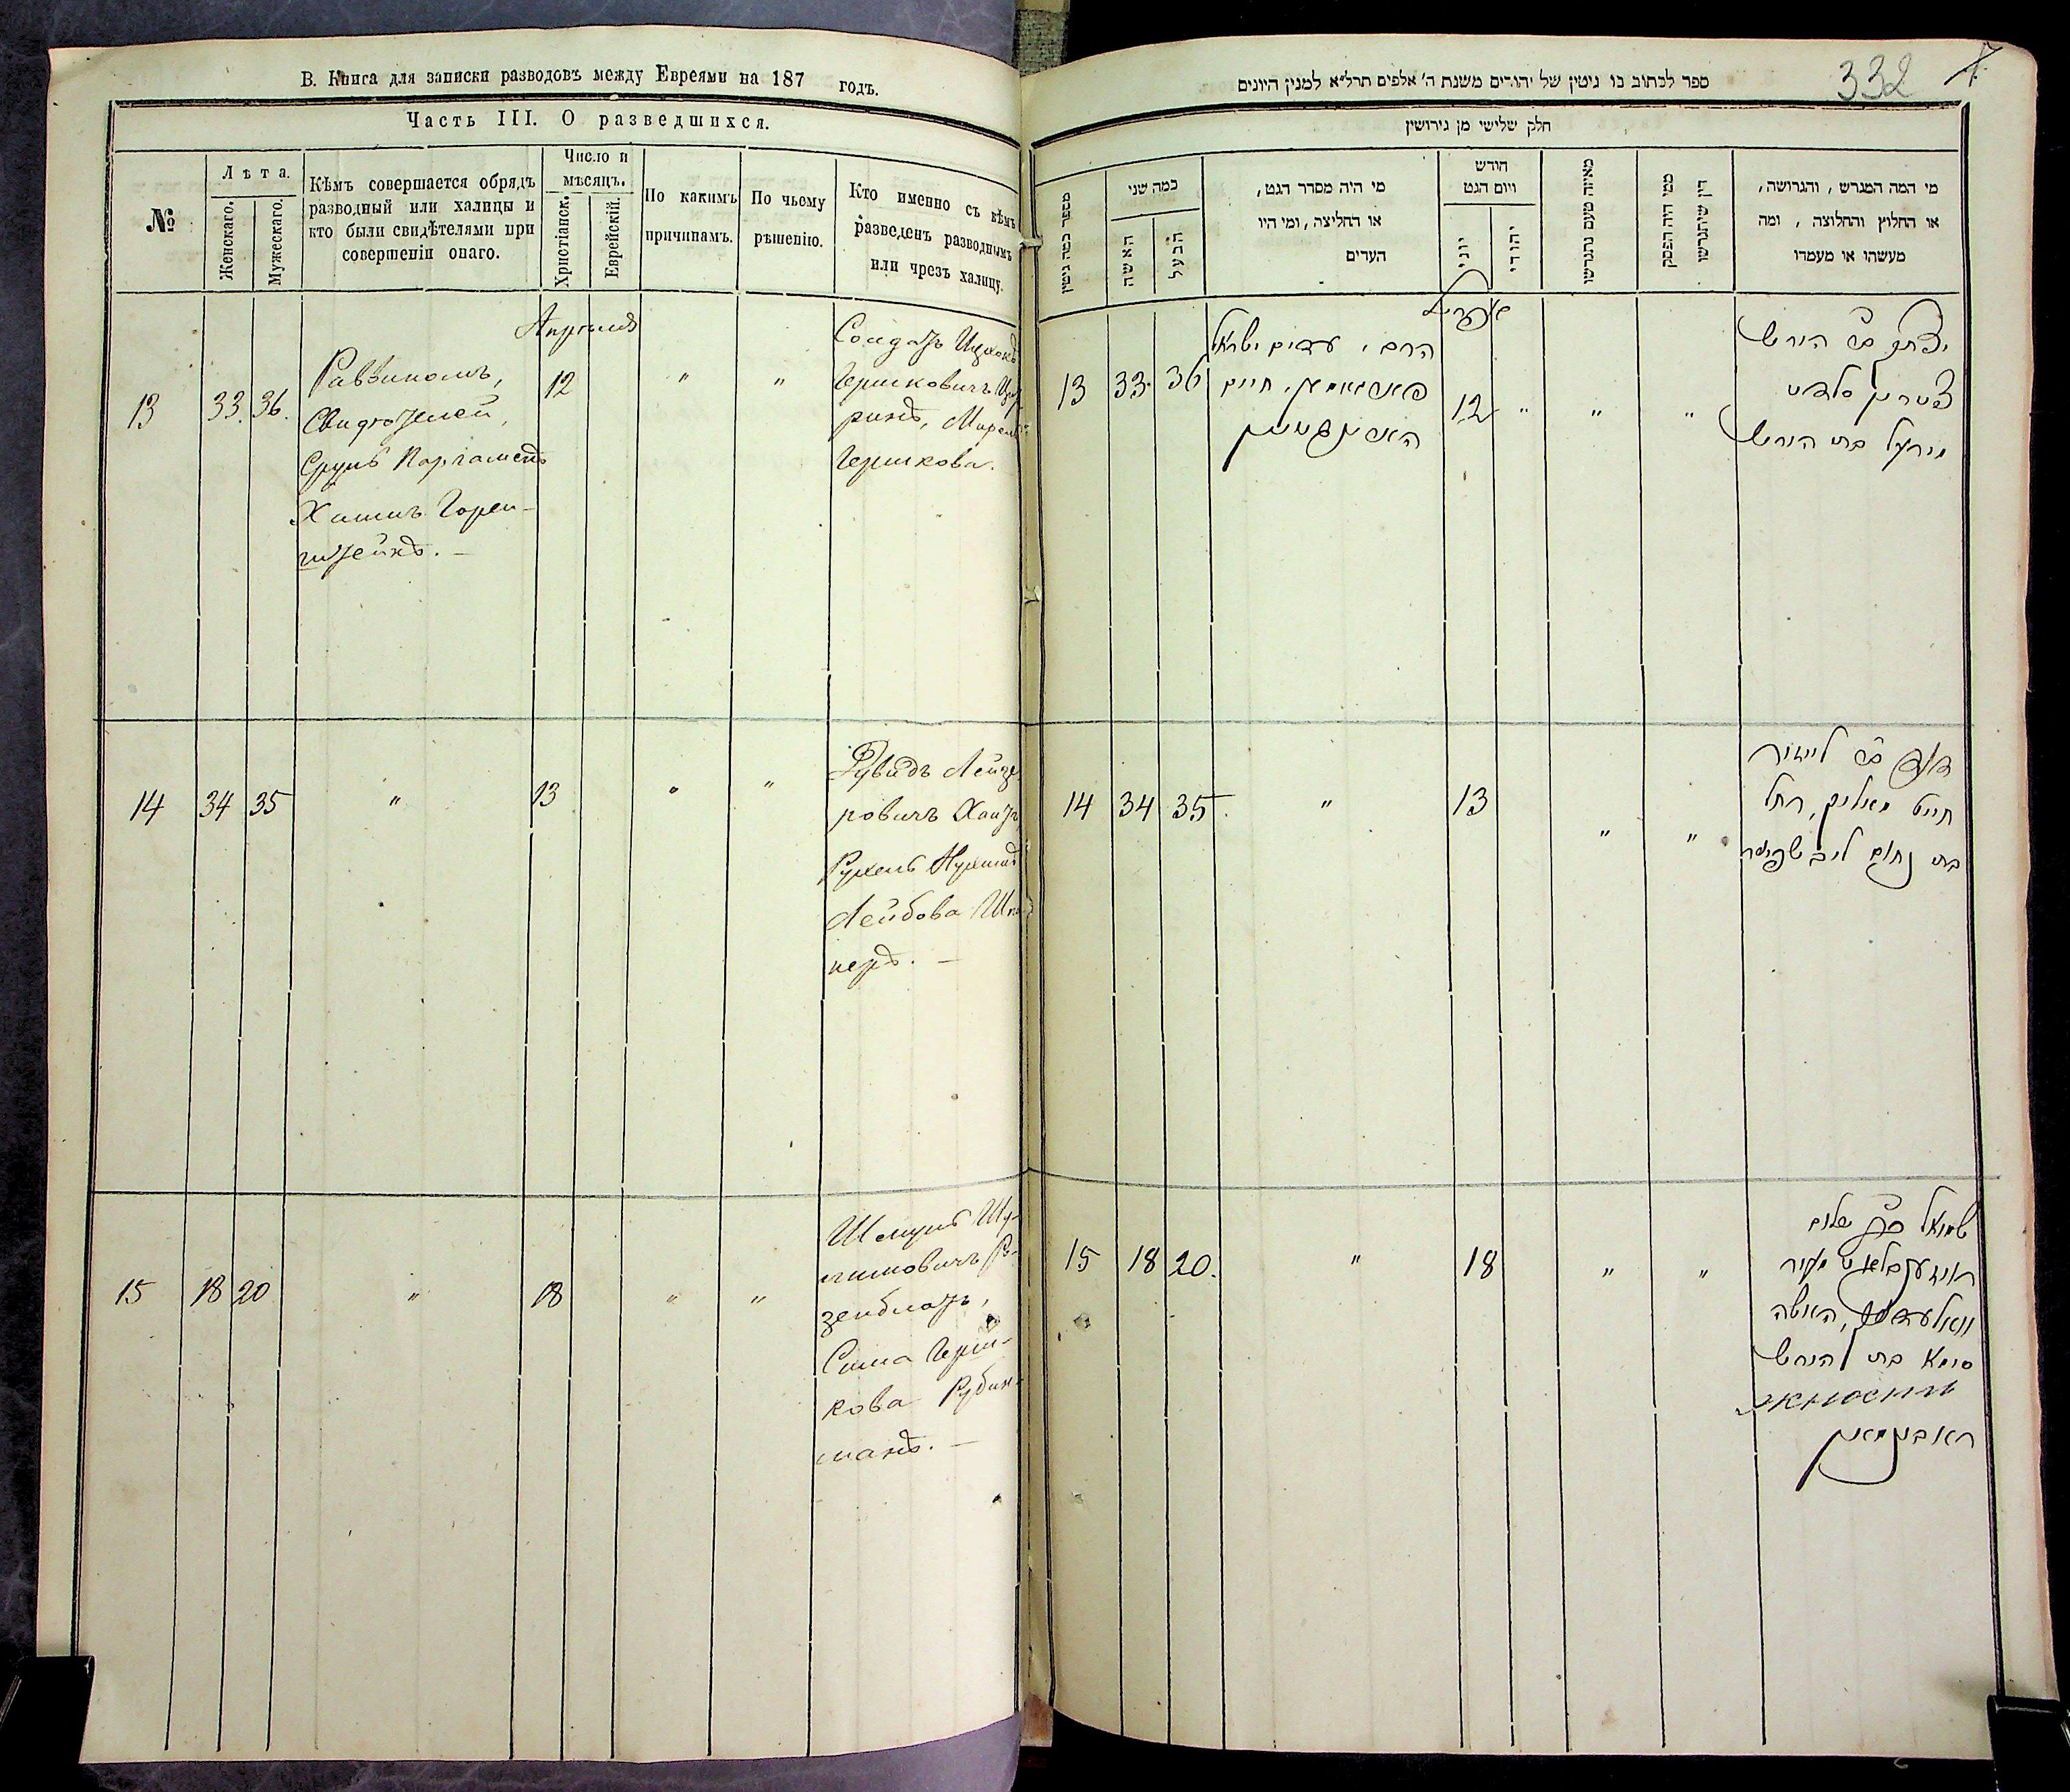 В. Книга для записки разводовъ между Евреями на 187 годъ.
Часть III. О разведшихся.
№
Лѣта.
Женскаго.
Мужескаго.
Кѣмъ совершается обрядъ
разводный или халицы и
кто были свидѣтелями при
совершеніи онаго.
Число и
мѣсяцъ.
Христіанск.
Еврейскій.
По какимъ
причинамъ.
По чьему
рѣшенію.
Кто именно съ кѣмъ
разведенъ разводнымъ
или чрезъ халицу.
13
33.
36.
Раввиномъ,
Свидѣтелей,
Сруль
Хаимъ Горен-
штейнъ. —
Апрѣля
12
"
"
Солдатъ Ицхокъ
Гершковичъ
ринъ,
Гершкова.
14
34
35
"
13
"
"
Дувидъ Лейзе
ровичъ
Рухель Нухимъ
Лейбова
керъ. —
15
18
20
"
18
"
"
Шмуль
зенблатъ,
Сима Герш-
кова Рубин-
манъ. —
332
ספר לכתוב בו גיטין של יהודים משנת ה' אלפים תרל״א למנין היונים
חלק שלישי מן גירושין
מספר כמה גיטין
כמה שני
האשה
הבעל
מי היה מסדר הגט,
או החליצה, ומי היו
העדים
חודש
ויום הגט
יוני
יהודי
מאיזה טעם נתגרשו
ממי היה הפסק
דין שיתגרשו
מי המה המגרש, והגרושה,
או החלוץ והחלוצה, ומה
מעשהו או מעמדו
13
33.
36
הרב, עדים ישראל
חיים
אפריל
12
"
"
"
יצחק ב״ר הירש
בת הירש
14
34
35
"
13
"
"
דוד ב״ר לייזור
רחל
בת נחום ליב
15
18
20.
"
18
"
"
שמואל ב״ר שלום
האשה
סימא בת הירש
ראבינמאן